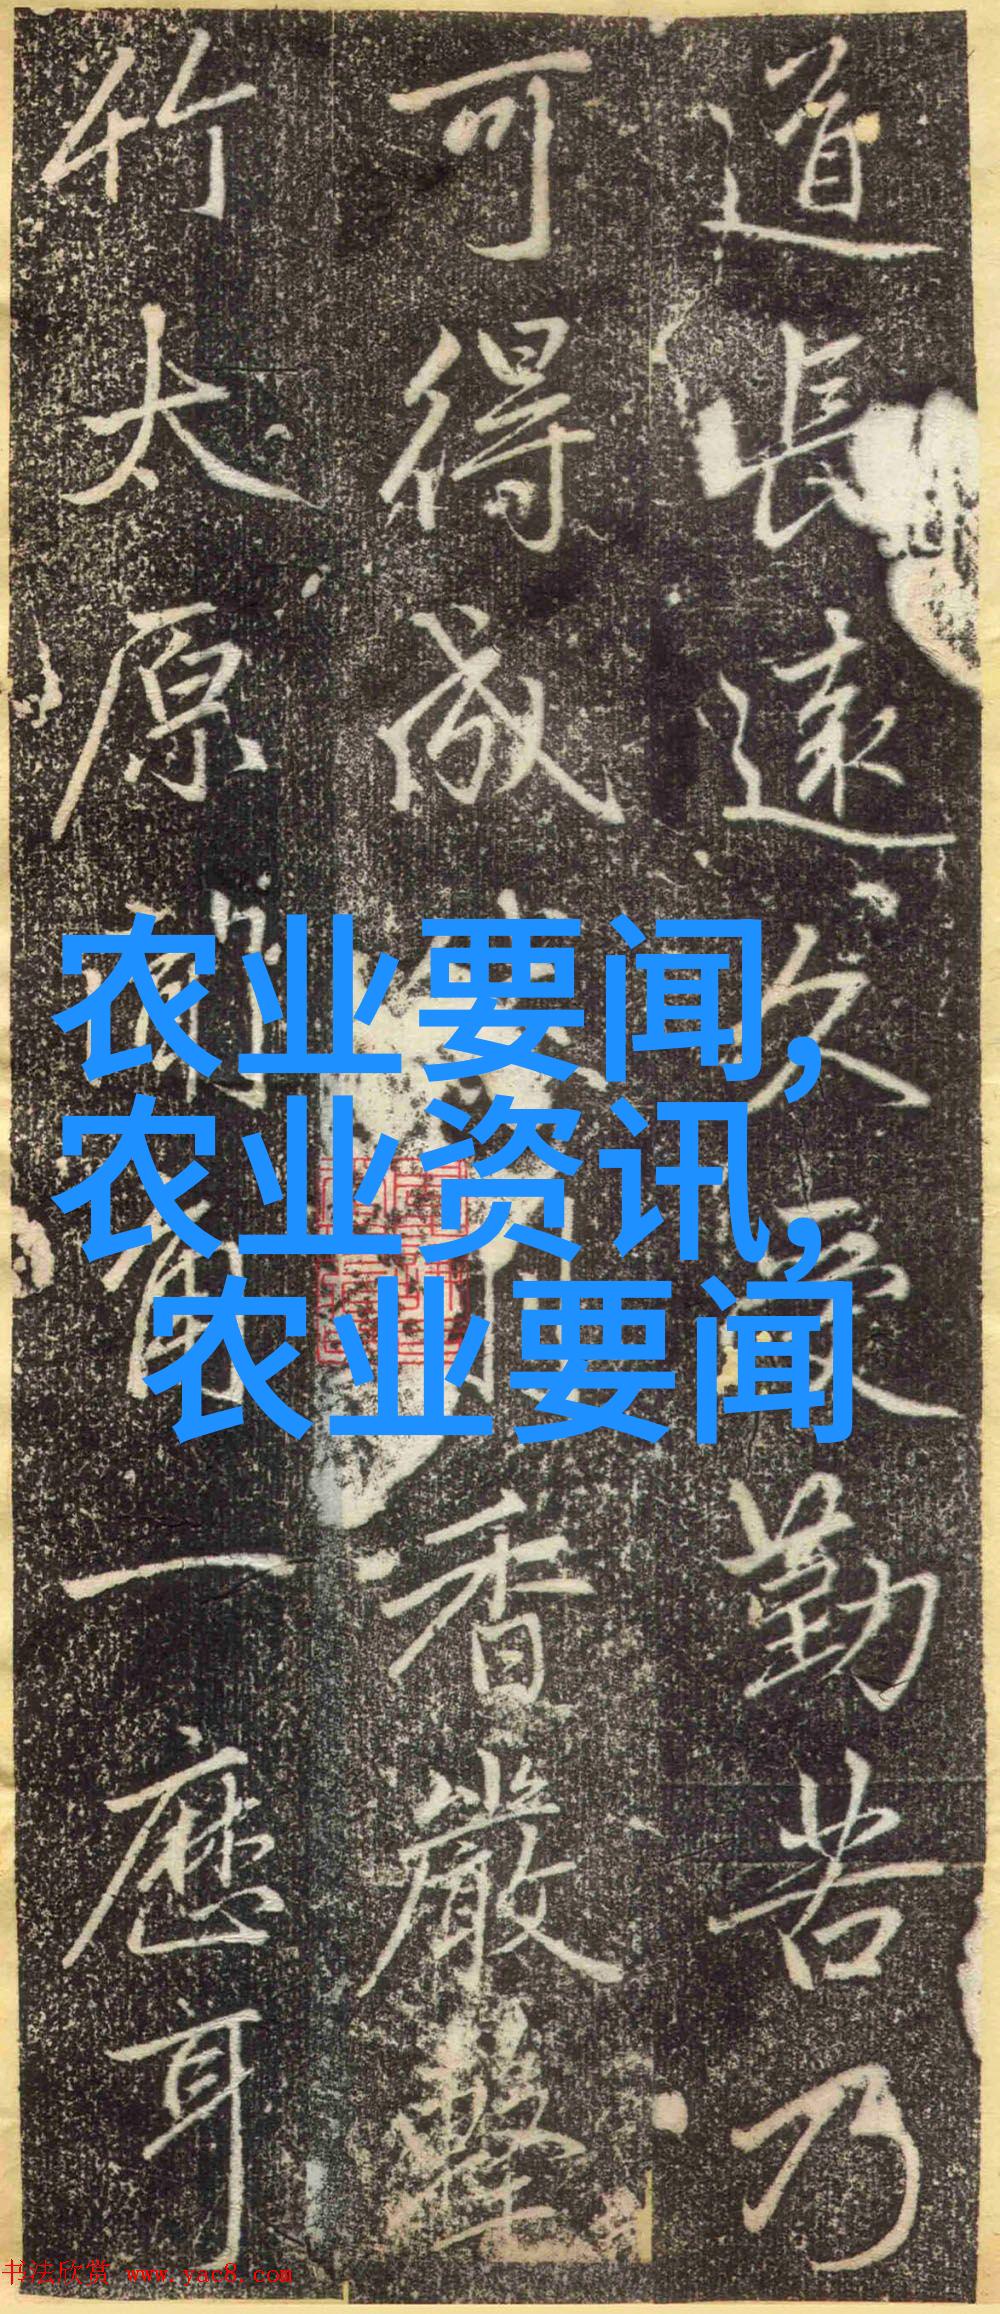 道長遠久受勤苦乃
可得成香嚴擊
竹太原聞角一歷耳
农业要闻,
农业资讯,
农业要闻
书法欣赏 www.yac8.com